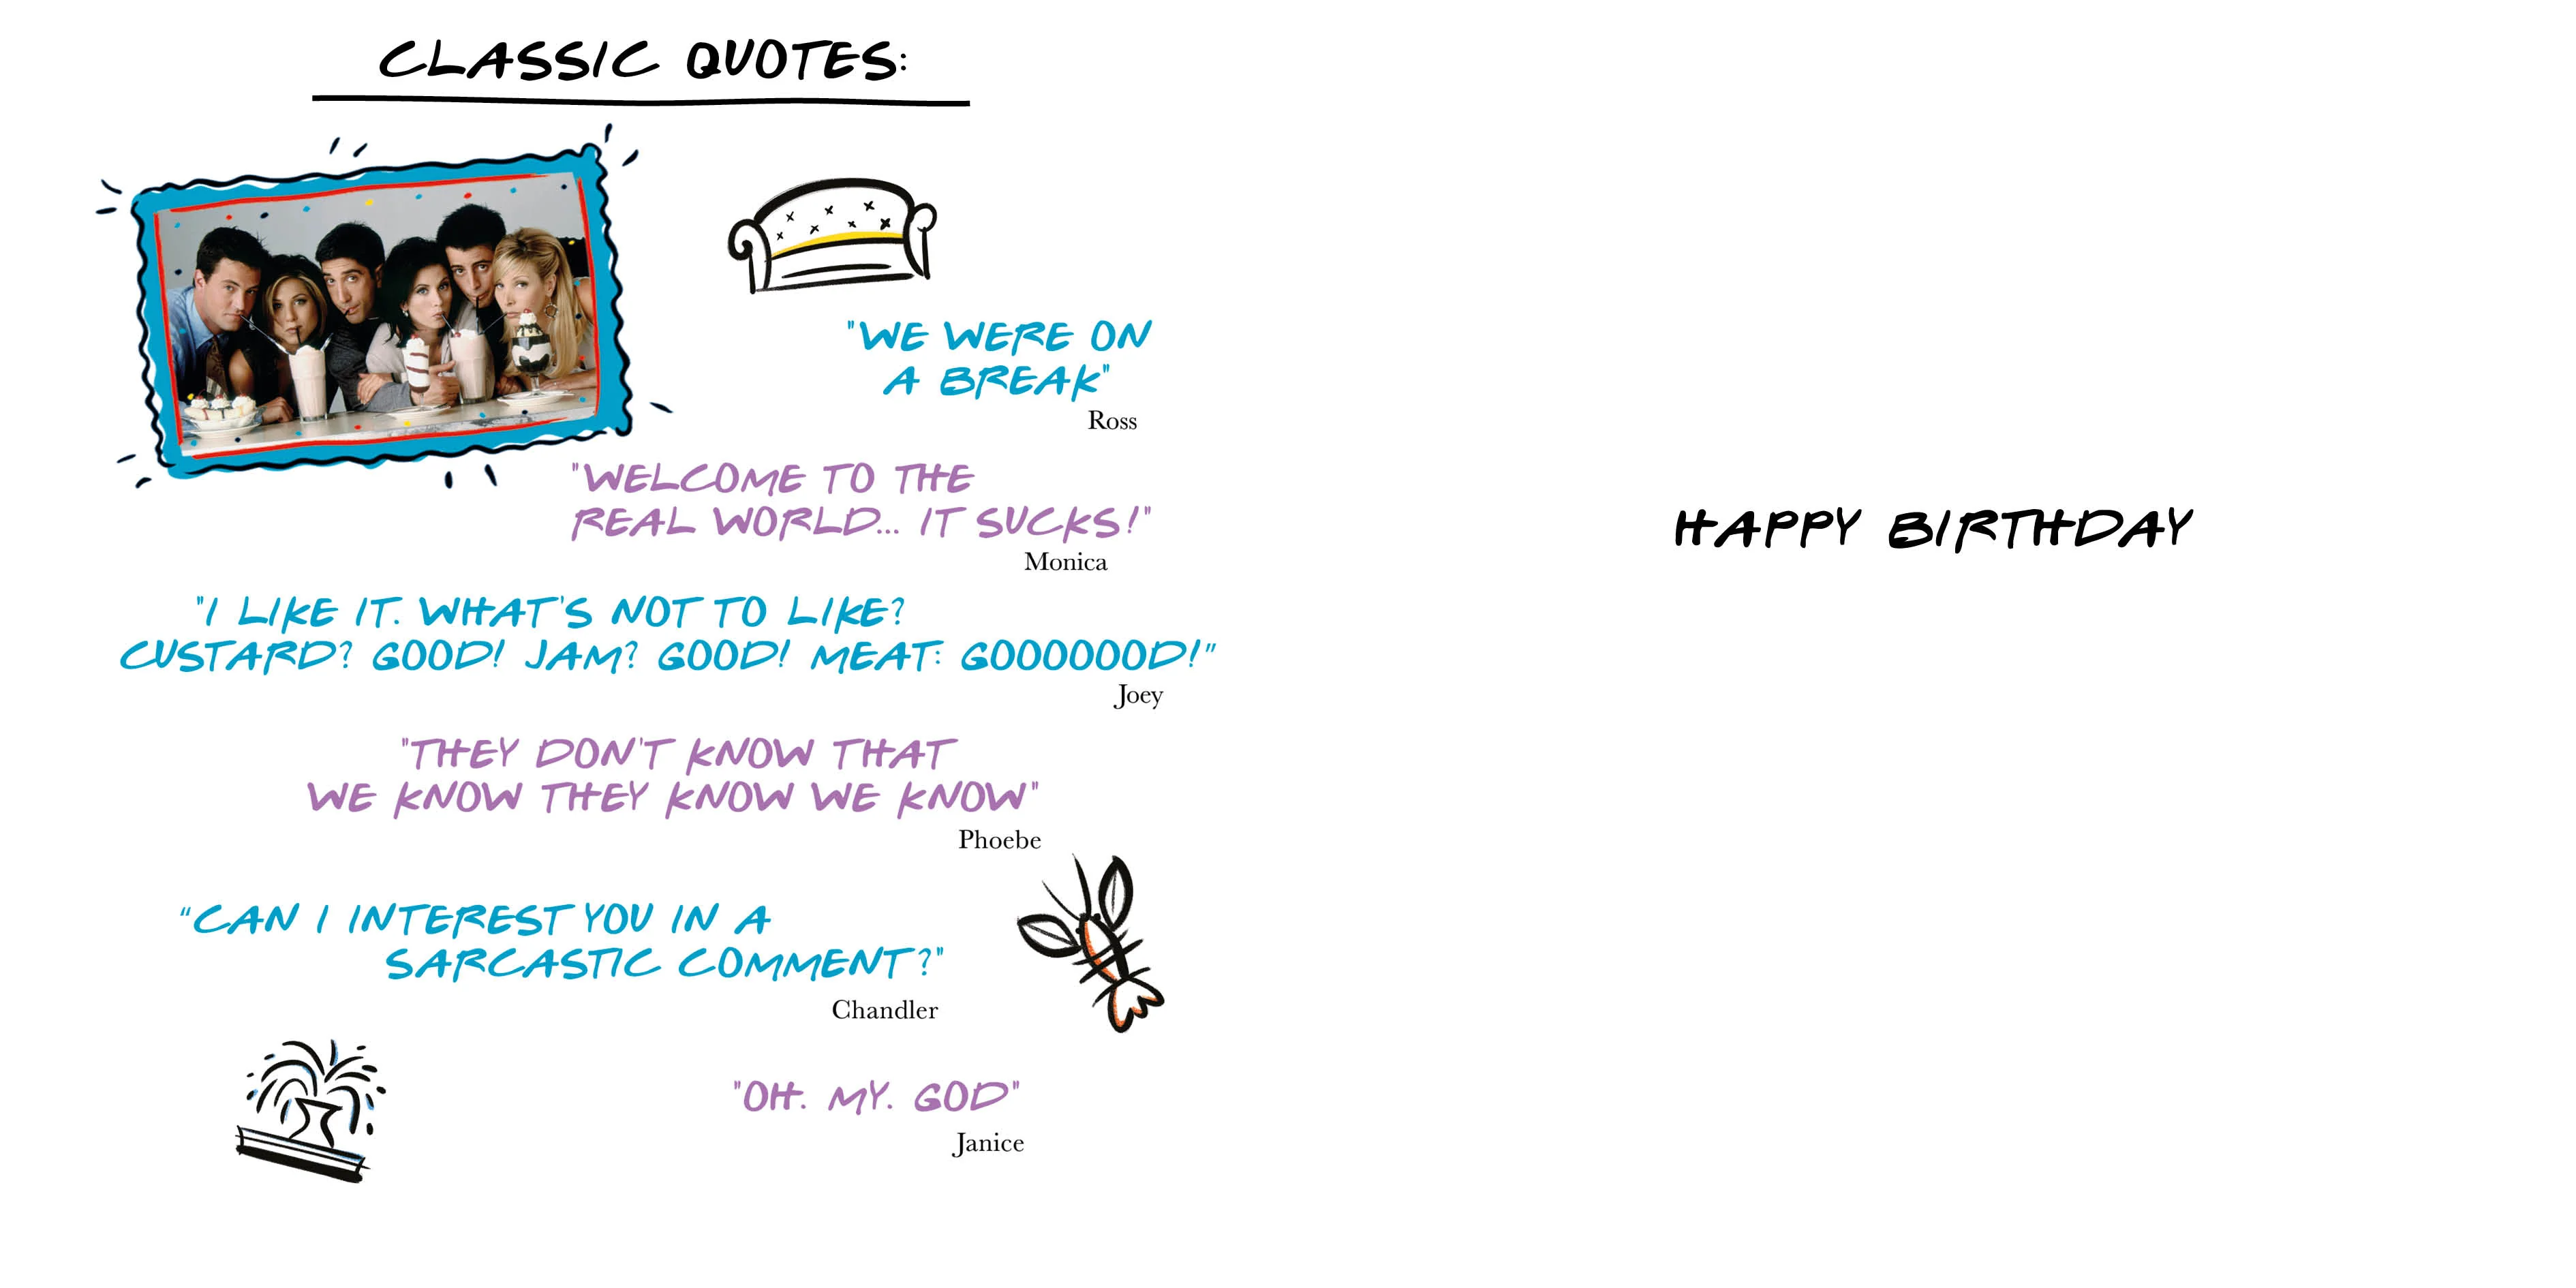 CLASSIC QUOTES:
"WE WERE ON
A BREAK"
Ross
"WELCOME TO THE
REAL WORLD... IT SUCKS!"
Monica
"I LIKE IT. WHAT'S NOT TO LIKE?
CUSTARD? GOOD! JAM? GOOD! MEAT: GOOOOOOD!"
Joey
"THEY DON'T KNOW THAT
WE KNOW THEY KNOW WE KNOW"
Phoebe
"CAN I INTEREST YOU IN A
SARCASTIC COMMENT?"
Chandler
"OH. MY. GOD"
Janice
HAPPY BIRTHDAY